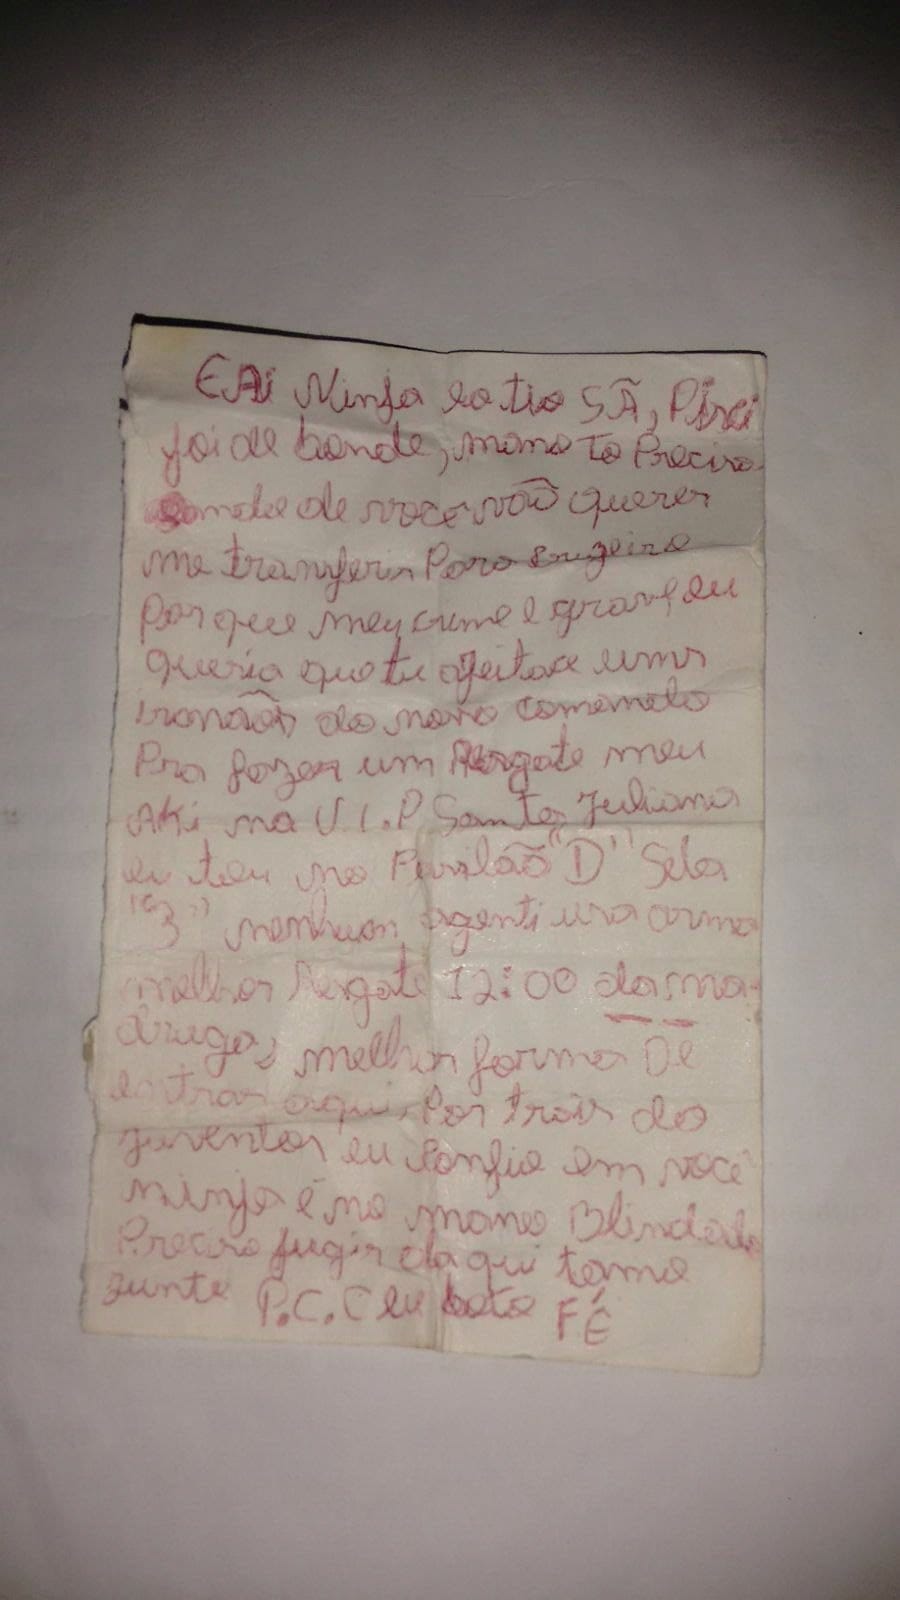 EAi Ninja eo tio SÃ, Pirei
foi de bonde, mano to Preciso
ando de você vão querer
me transferir Para Cruzeiro
Porque meu crime e grave, eu
queria que tu ageitace uns
irmãos do nosso comamdo
Pra fazer um Resgate meu
AKi na U.I.P Santa Juliana
eu tou no Pavilão "D" Sela
"3" nenhum agenti usa arma
melhor Resgate 12:00 da ma
druga, melhor forma De
entrar aqui, Por trais do
juventos eu Confio em você
ninja é no mano Blindado
Preciso fugir da qui tamo
junto P.C.C eu boto FÉ